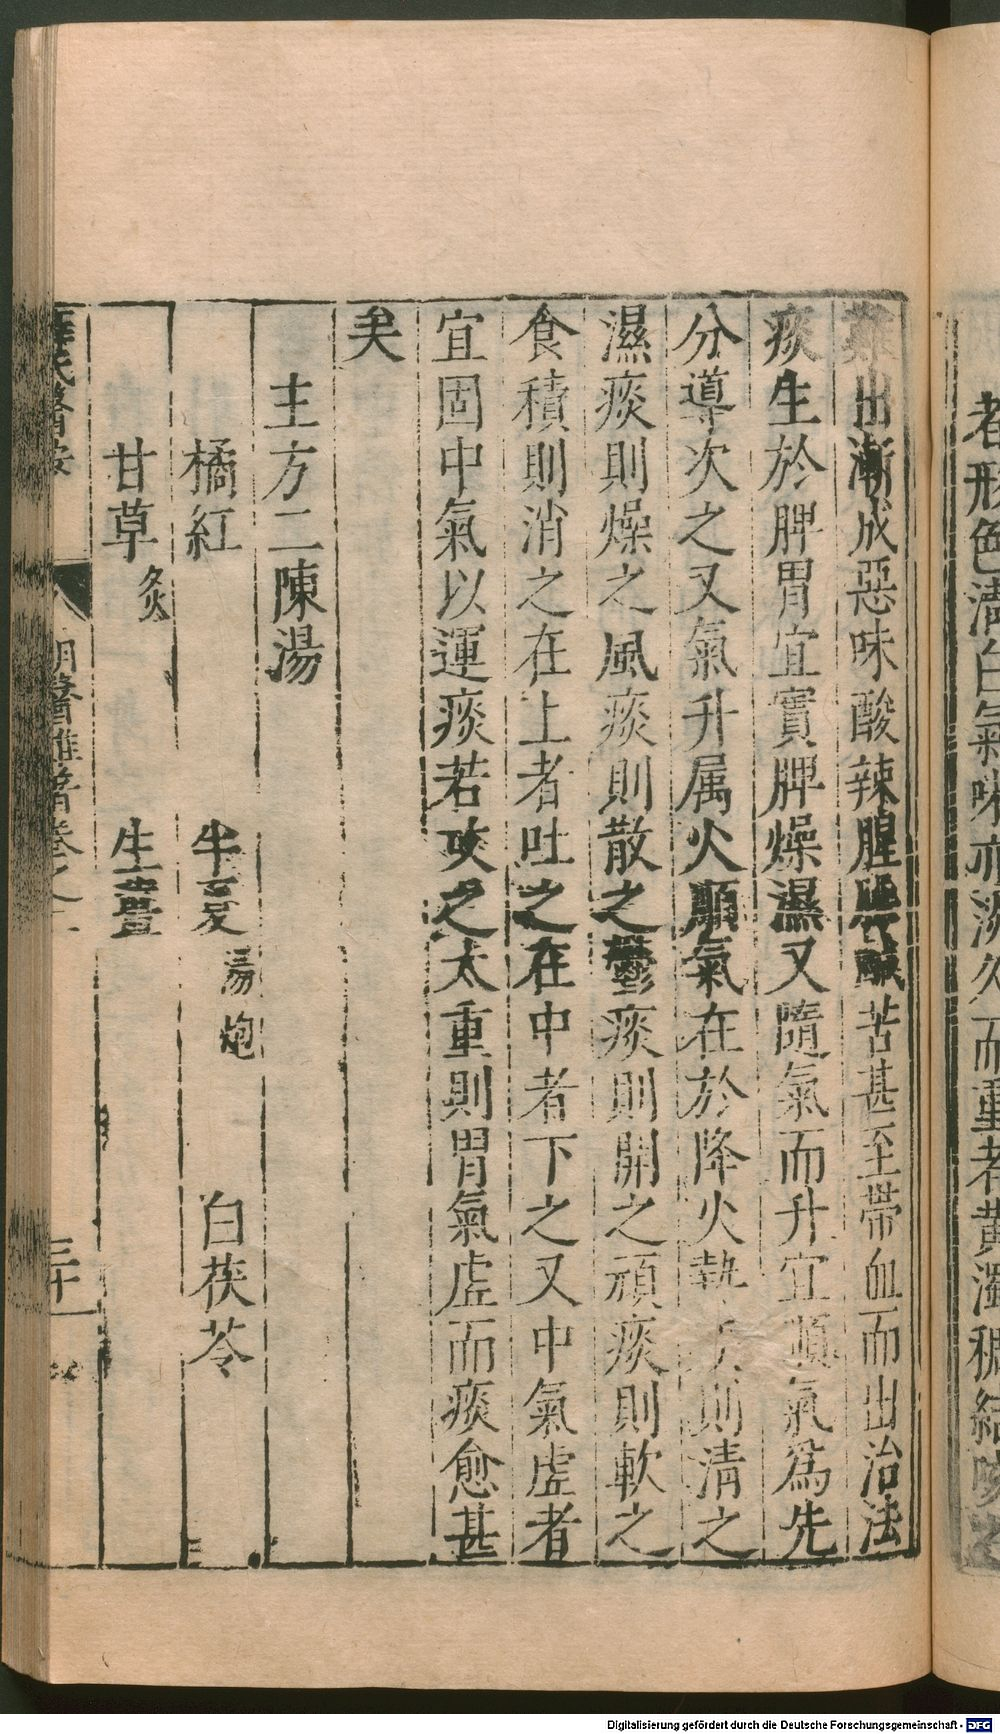 者形色清白氣味亦淡久而重者黄濁稠結咳之
難出漸成惡味酸辣腥臊鹹苦甚至帶血而出治法
痰生於脾胃宜實脾燥濕又隨氣而升宜順氣爲先
分導次之又氣升属火順氣在於降火熱痰則清之
濕痰則燥之風痰則散之鬱痰則開之頑痰則軟之
食積則消之在上者吐之在中者下之又中氣虛者
宜固中氣以運痰若攻之太重則胃氣虛而痰愈甚
矣
主方二陳湯
橘紅 半夏 湯炮 白茯苓
甘草 炙 生薑
薛氏醫按 明醫雜著卷之 三十
Digitalisierung gefördert durch die Deutsche Forschungsgemeinschaft - DFG